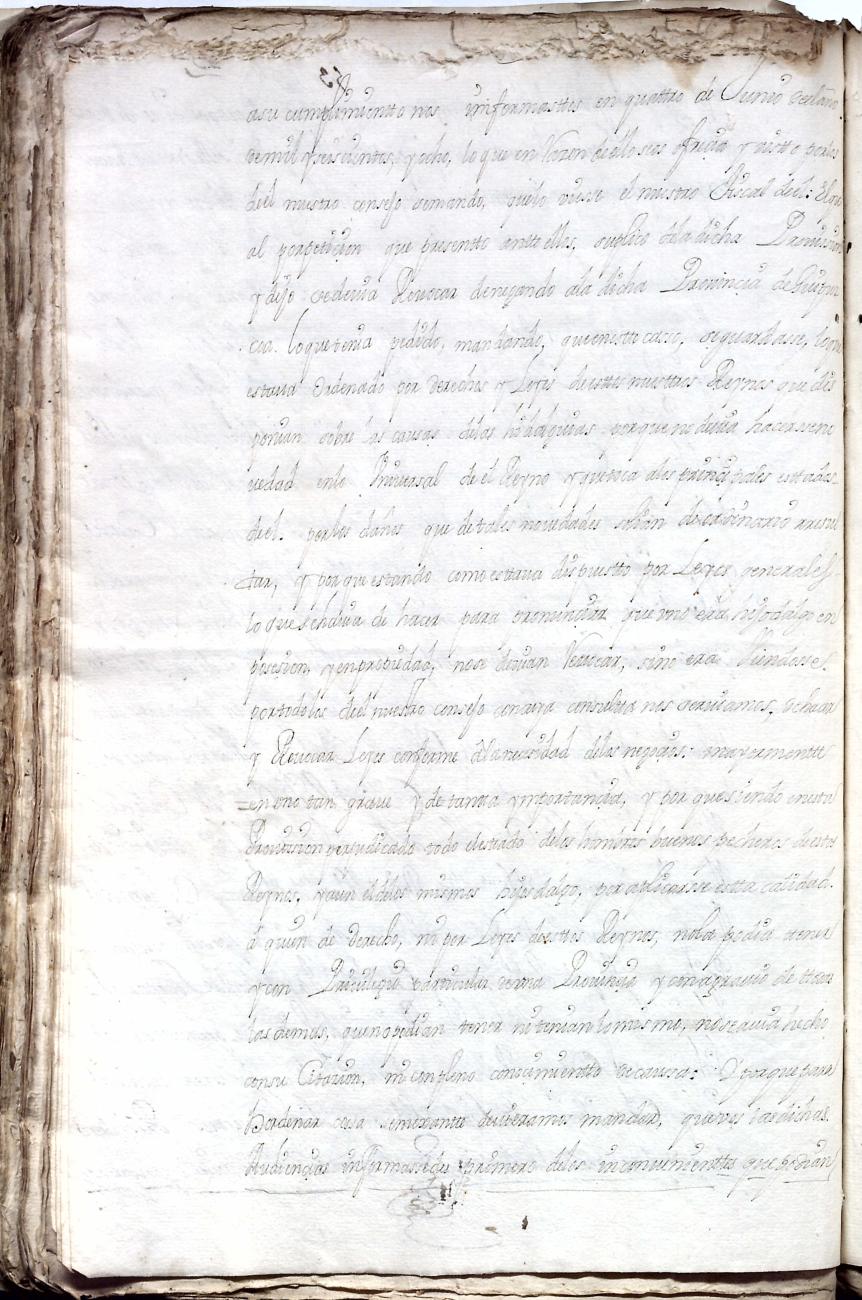 asu cumplimientto nos ymformasttes en quattro de Junio del año
demil yseiscientos, yocho, lo que en Razon deello seos ofrecia y visto por los
del nuestro consejo demando, quelo viesse el nuestro fiscal deel: El qual
al porpeticion que presentto antte ellos, suplico dela dicha Provission
y dijo sedevia Revocar denegando ala dicha Provincia deGuipuz
coa. loque tenia pedido, mandando, que enestto casso, seguardasse, loque
estava ordenado por derecho y Leyes deesttos nuestros Reynos que dis
ponian sobre las causas delas hidalguias porqueno devia hacersse no
vedad enlo Universal de el Reyno yquetoca alos prinzipales esttados
deel. porlos daños que detales novedades solian deordinario rresul
tar, y por que estando como esttava dispuestto por Leyes generales
lo que sehavia de hacer para pronunciar que uno era hijodalgo en
posesion, yenpropiedad, nose devian Revocar, sino era viendosse
portodos los del nuestro consejo conaya consulta nos serviamos, echar
y Revocar Leyes conforme ala necesidad delos negocios: mayormentte
en uno tan grave y de tanta ymportancia, y por que siendo enesta
Provission perjudicado todo elestado delos hombres buenos pecheros deestos
Reynos, yaun el delos mismos hijosdalgo, por aplicarsse estta calidad.
a quien de derecho, ni por Leyes deesttos Reynos, nola podia tener
y con Privilegio particular deuna Provincia y conagravio de ttodas
las demas, queno podian tener ni tenian lo mismo, nose avia hecho
consu Citacion, ni conpleno conocimientto decausa: Y porque para
hordenar cosa semejante devieramos mandar, que vos las dichas
Audiencias informassedes primero delos inconvenienttes que podian